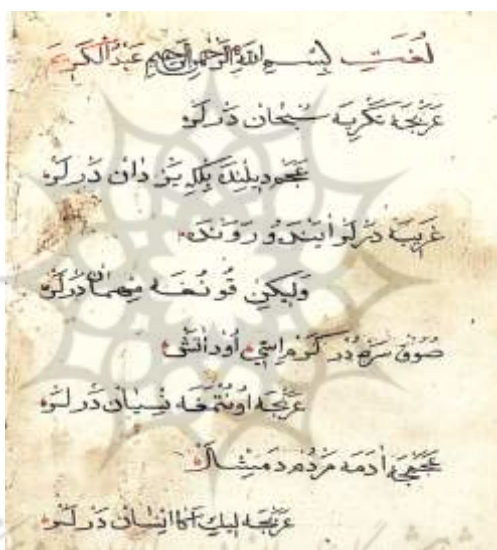 لُغَتِ بِسْمِ اللّٰهِ الرَّحْمٰنِ الرَّحِيمِ عَبْدُ الْكَرَم
عَرَبْجَه تَكْرِيَه سُبْحَان دَرْلَرْ
عَجَم دِيلِنْدَه بِلَك يَزْدَان دَرْلَرْ
غَرِيبَه دَرْلَرْ اَيَنْدَه وُ رَوَنْدَه
وَلِيكِنْ قُونُغَه مِهْمَان دَرْلَرْ
صَوُوق سَرْد دُر كَرْم اِسِّي اُود آتَش
عَرَبْجَه اُونُتْمَغَه نِسْيَان دَرْلَرْ
عَجَمْجَه آدَمَه مَرْدُم دَمِشْلَرْ
عَرَبْجَه لِيك اَكَا اِنْسَان دَرْلَرْ